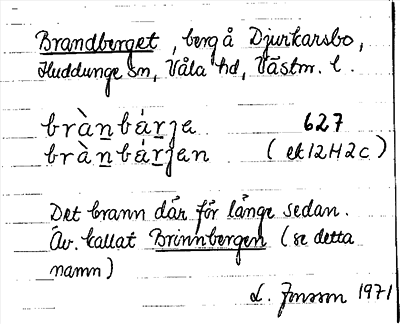 Brandberget, berg å Djurkarsbo,
Huddunge sn, Våla hd, Västm. l.
bràn̲bár̲ja 627
bràn̲bár̲jan (ek 12H2c)
Det brann där för länge sedan.
Äv. kallat Brinnbergen (se detta
namn)
L. Jonsson 1971